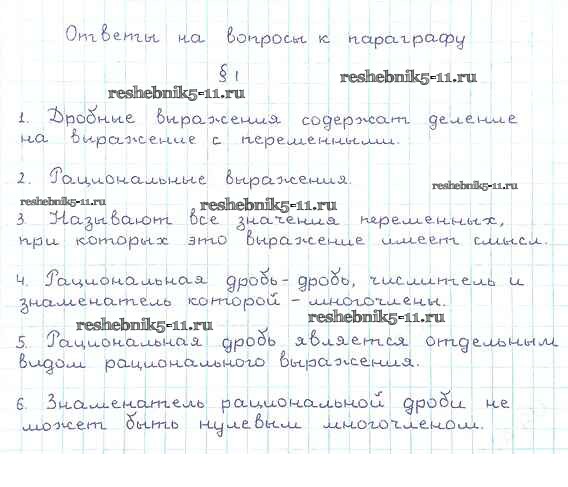 Ответы на вопросы к параграфу
§ 1
reshebnik5-11.ru
reshebnik5-11.ru
1. Дробные выражения содержат деление
на выражение с переменными.
2. Рациональные выражения.
reshebnik5-11.ru
reshebnik5-11.ru
reshebnik5-11.ru
3. Называют все значения переменных,
при которых это выражение имеет смысл.
4. Рациональная дробь - дробь, числитель и
знаменатель которой - многочлены.
reshebnik5-11.ru
reshebnik5-11.ru
5. Рациональная дробь является отдельным
видом рационального выражения.
6. Знаменатель рациональной дроби не
может быть нулевым многочленом.